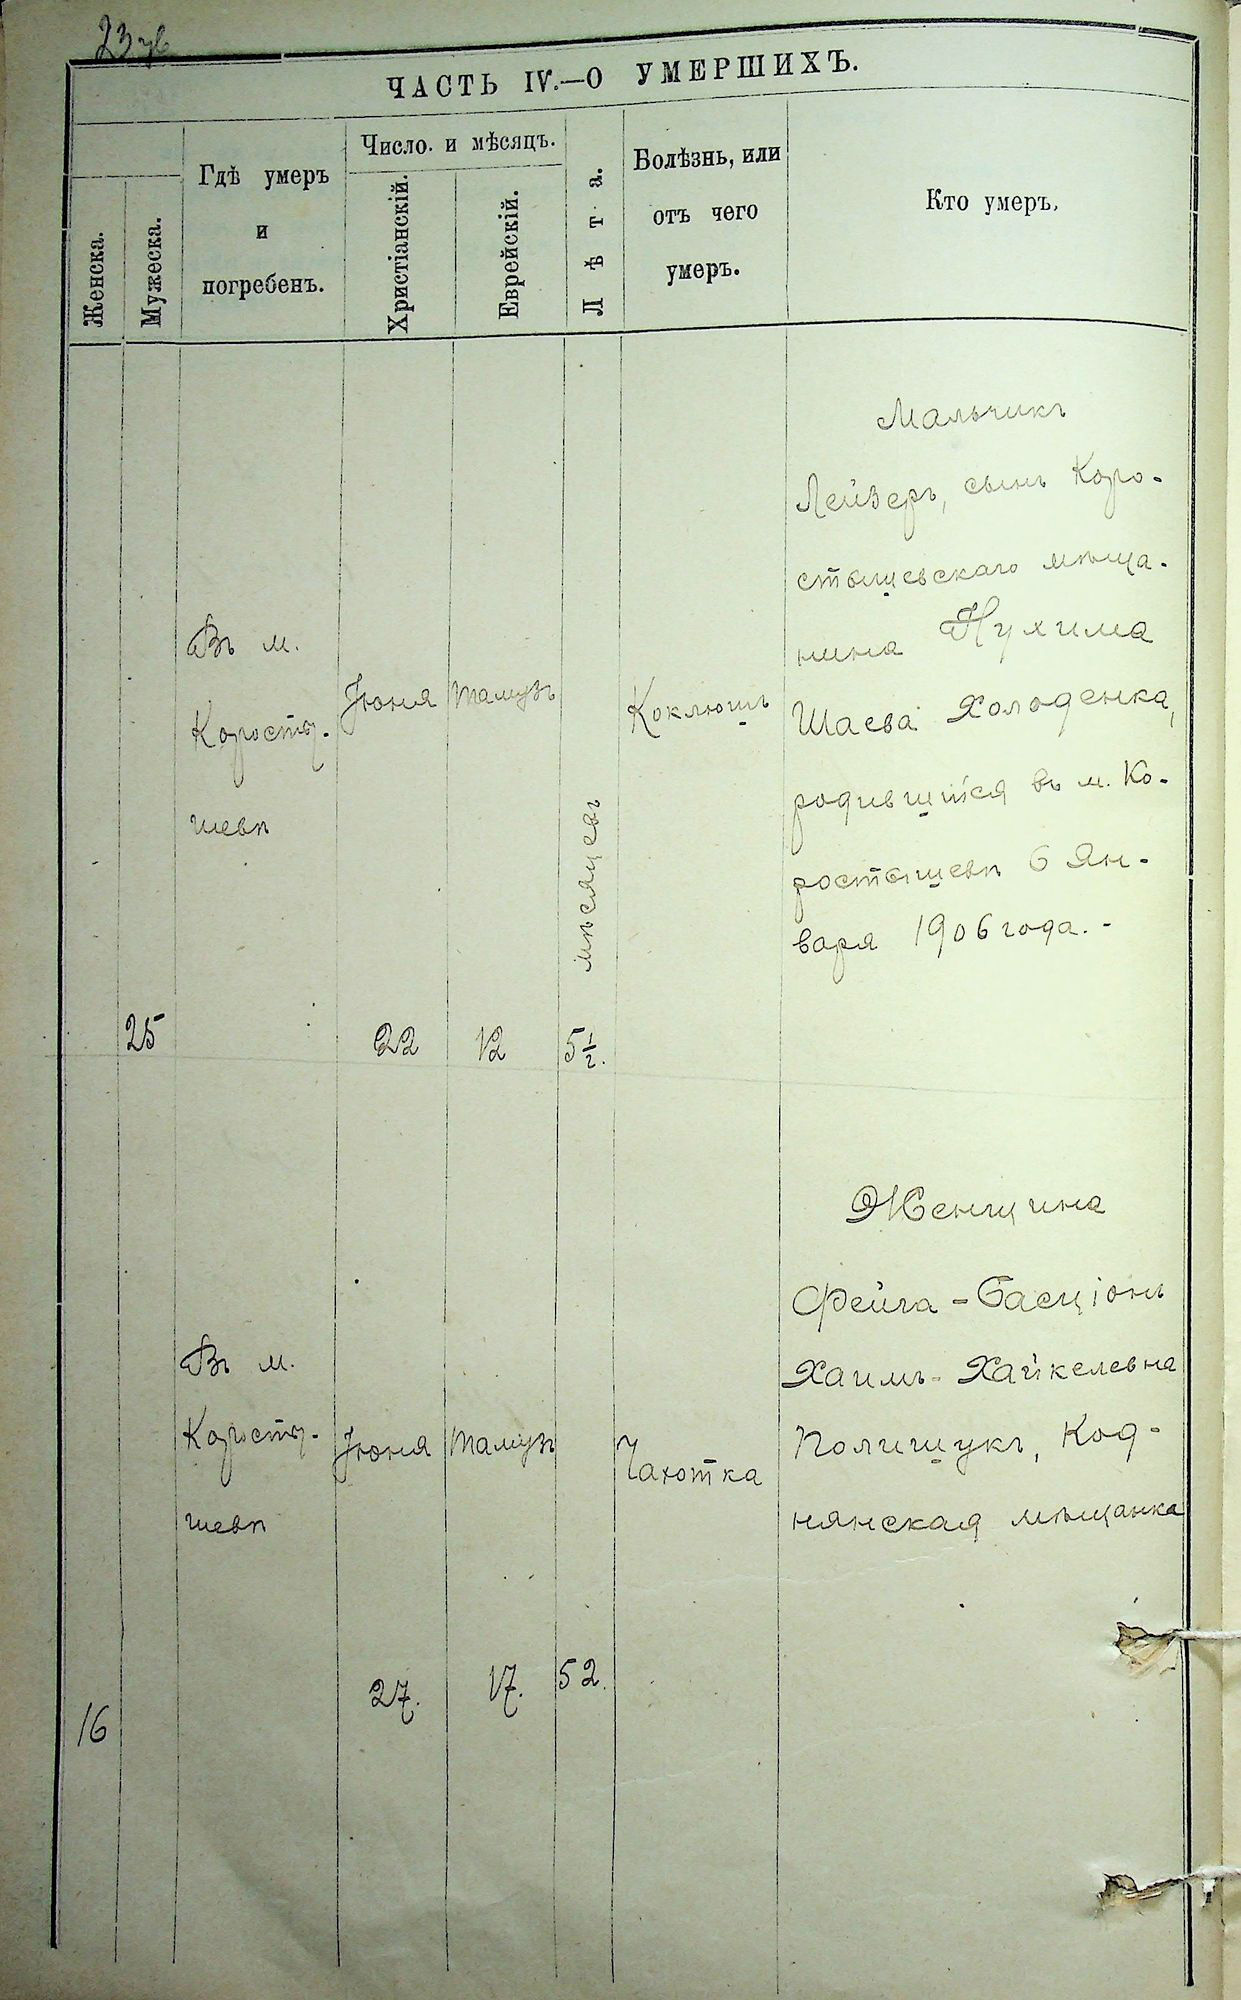 ЧАСТЬ IV.—О УМЕРШИХЪ.
Женска.
Мужеска.
Гдѣ умеръ
и
погребенъ.
Число. и мѣсяцъ.
Христіанскій.
Еврейскій.
Лѣта.
Болѣзнь, или
отъ чего
умеръ.
Кто умеръ.
25
Въ м.
Коросты-
шевѣ
Іюня
22
Тамузъ
12
мѣсяцевъ
5 1/2.
Коклюшъ
Мальчикъ
Лейзеръ, сынъ Коро-
стышевскаго мѣща-
нина Нухима
Шаева Холоденка,
родившійся въ м. Ко-
ростышевѣ 6 Ян-
варя 1906 года.-
16
Въ м.
Коросты-
шевѣ
Іюня
27.
Тамузъ
17.
52.
Чахотка
Женщина
Фейга-Басціонъ
Хаимъ-Хайкелевна
Полищукъ, Код-
нянская мѣщанка